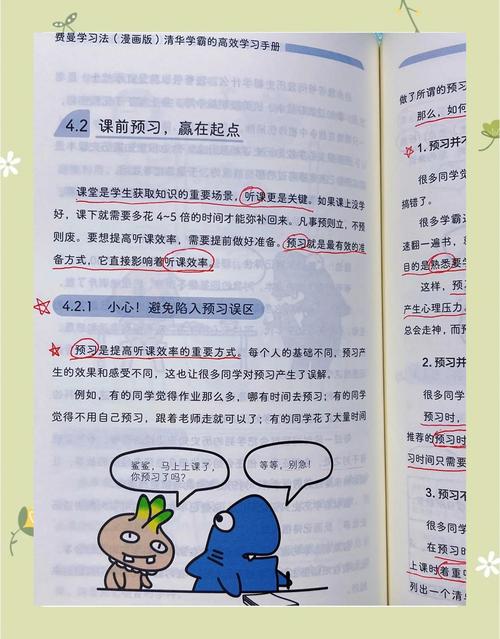 费曼学习法（漫画版）清华学霸的高效学习手册
4.2 课前预习，赢在起点
课堂是学生获取知识的重要场景，听课更是关键。如果课上没学
好，课下就需要多花 4~5 倍的时间才能弥补回来。凡事预则立，不预
则废。要想提高听课效率，需要提前做好准备。预习就是最有效的准
备方式，它直接影响着听课效率。
4.2.1 小心！避免陷入预习误区
预习是提高听课效率的重要方式。每个人的基础不同，预习产
生的效果和感受不同，这也让很多同学对预习产生了误解，
例如，有的同学觉得作业那么多，哪有时间去预习；有的同学
觉得不用自己预习，跟着老师走就可以了；有的同学花了大量时间
鲨鲨，马上上课了，
你预习了吗？
等等，别急！
做了所谓的预习
那么，如何
1. 预习并不
很多同学
搞错了。
很多学霸
速翻一遍书，
目的是熟悉要学
这样，预习
产生心理压力。
总会走神，而预
2. 预习并
很多同学
预习时，
推荐的预习时
习时间只需要
3. 预习不
很多同学
在预习时
上课时着重
列出一个清单